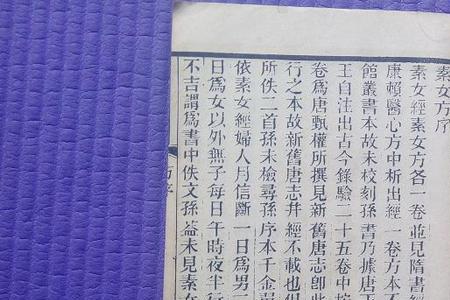 素女方序
素女經素女方各一卷並見隋書經
康賴醫心方中析出經一卷方本
館叢書本故未校刻孫書乃據唐王
王自注出古今錄驗二十五卷中
卷爲唐甄權所撰見新舊唐志卽
行之本故新舊唐志幷經不載也
所佚二首孫未檢尋孫序本千金
依素女經婦人月信斷一日爲男二
日爲女以外無子每日午時夜半行
不吉謂爲書中佚文孫益未見素女
方序